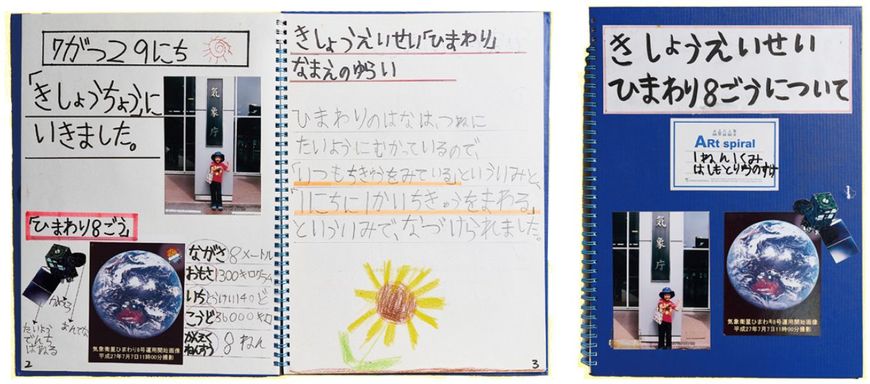 7がつ29にち
「きしょうちょう」に
いきました。
気象庁
「ひまわり8ごう」
ながさ8メートル
おもさ1300キログラム
いちとうけい140ど
こうど36000キロ
8ねん
たいよう
でんち
ぱねる
あんてな
気象衛星ひまわり8号運用開始画像
平成27年7月7日11時00分撮影
2
きしょうえいせい「ひまわり」
なまえのゆらい
ひまわりのはなは、つねに
たいようにむかっているので、
「いつもちきゅうをみている」といういみと、
「1にちに1かいちきゅうをまわる」
といういみで、なづけられました。
3
きしょうえいせい
ひまわり8ごうについて
ARt spiral
1ねん1くみ
はしもとりゅうのすけ
気象庁
気象衛星ひまわり8号運用開始画像
平成27年7月7日11時00分撮影